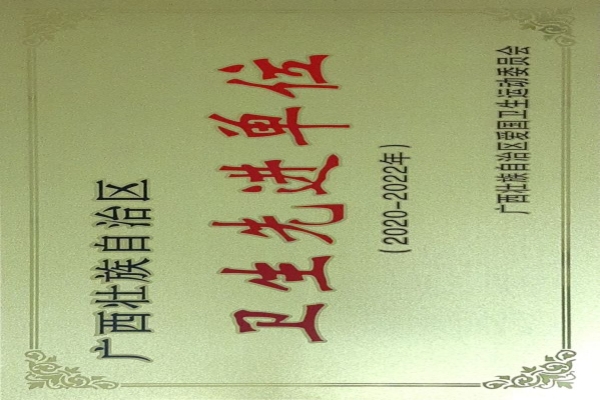 广西壮族自治区
卫生先进单位
（2020-2022年）
广西壮族自治区爱国卫生运动委员会